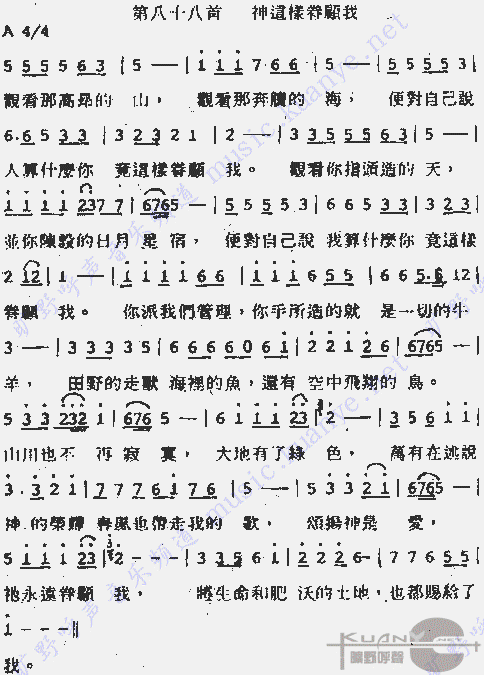 第八十八首 神這樣眷顧我
A 4/4
5 5 5 5 6 3 | 5 — | i i i 7·6 6 | 5 — | 5 5 5 5 3 |
觀看那高昂的 山， 觀看那奔騰的 海， 便對自己說
6·6 5 3 3 | 3 2 3 2 1 | 2 — | 3 3 5 5 5 6 3 | 5 — |
人算什麼你 竟這樣眷顧 我。 觀看你指頭造的 天，
i i i i 2 3 7 7 | 6 7 6 5 — | 5 5 5 5 3 | 6 6 5 3 3 | 3 2 3 |
並你陳設的日月 星 宿， 便對自己說 我算什麼你 竟這樣
2 1 2 | 1 — | i i i i 6 6 | i i i i 6 5 | 6 6 5·6 1 2 |
眷顧 我。 你派我們管理，你手所造的就 是一切的牛
3 — | 3 3 3 3 5 | 6 6 6 6 0 6 i | 2 2 i 2 6 | 6 7 6 5 — |
羊， 田野的走獸 海裡的魚，還有 空中飛翔的 鳥。
5 3 3 2 3 2 i | 6 7 6 5 — | 6 i i i 2 3 | 2 — | 3 5 6 i i |
山川也不 再寂 寞， 大地有了綠 色， 萬有在述說
3·3 2 i | 7 7 7 6 i 7 6 | 5 — | 5 3 3 2 i | 6 7 6 5 — |
神的榮耀 春風也帶走我的 歌， 頌揚神是 愛，
5 i i i 2 3 | 2 - - - | 3 3 5 6 i | 2 2 2 6 - | 7 7 6 5 5 |
祂永遠眷顧 我， 將生命和肥 沃的土地，也都賜給了
i - - - ‖
我。
旷野呼声音乐频道 music.kuanye.net
KUANYE.NET
曠野呼聲